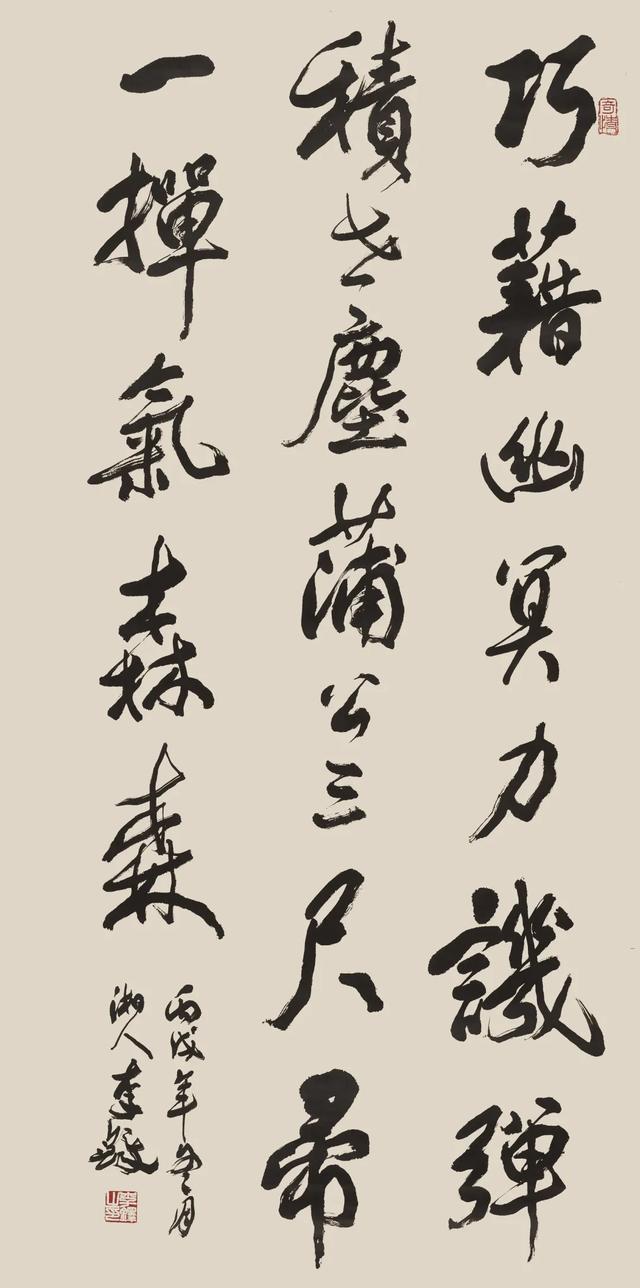 巧藉幽冥力譏彈
積世塵蒲公三尺帚
一撣氣森森
丙戌年冬月
湘人李鐸